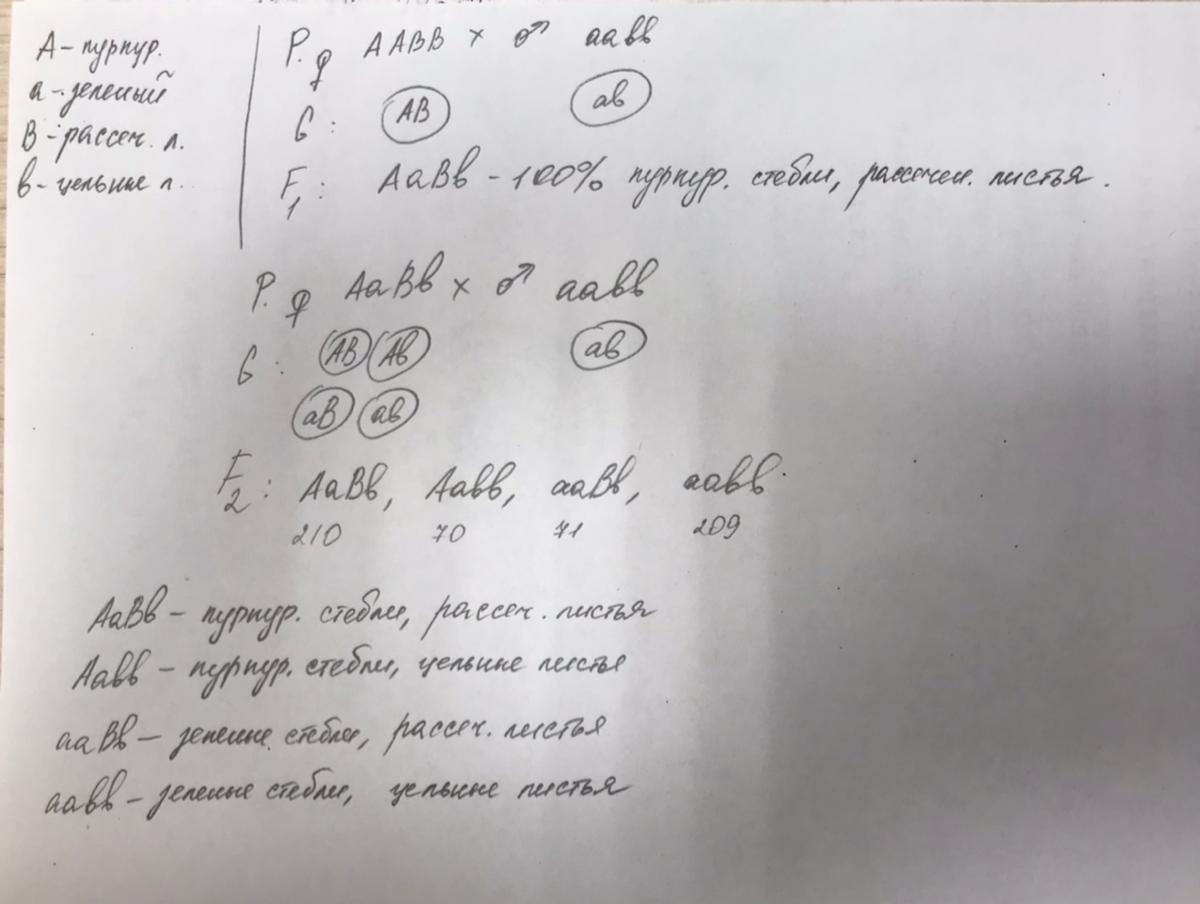 А - пурпур.
а - зеленый
В - рассеч. л.
в - цельные л.
Р. ♀ ААВВ × ♂ аавв
G: АВ ав
F1: АаВв - 100% пурпур. стебли, рассечен. листья.
Р. ♀ АаВв × ♂ аавв
G: АВ Ав ав
аВ ав
F2: АаВв, Аавв, ааВв, аавв.
210 70 71 209
АаВв - пурпур. стебли, рассеч. листья
Аавв - пурпур. стебли, цельные листья
ааВв - зеленые стебли, рассеч. листья
аавв - зеленые стебли, цельные листья